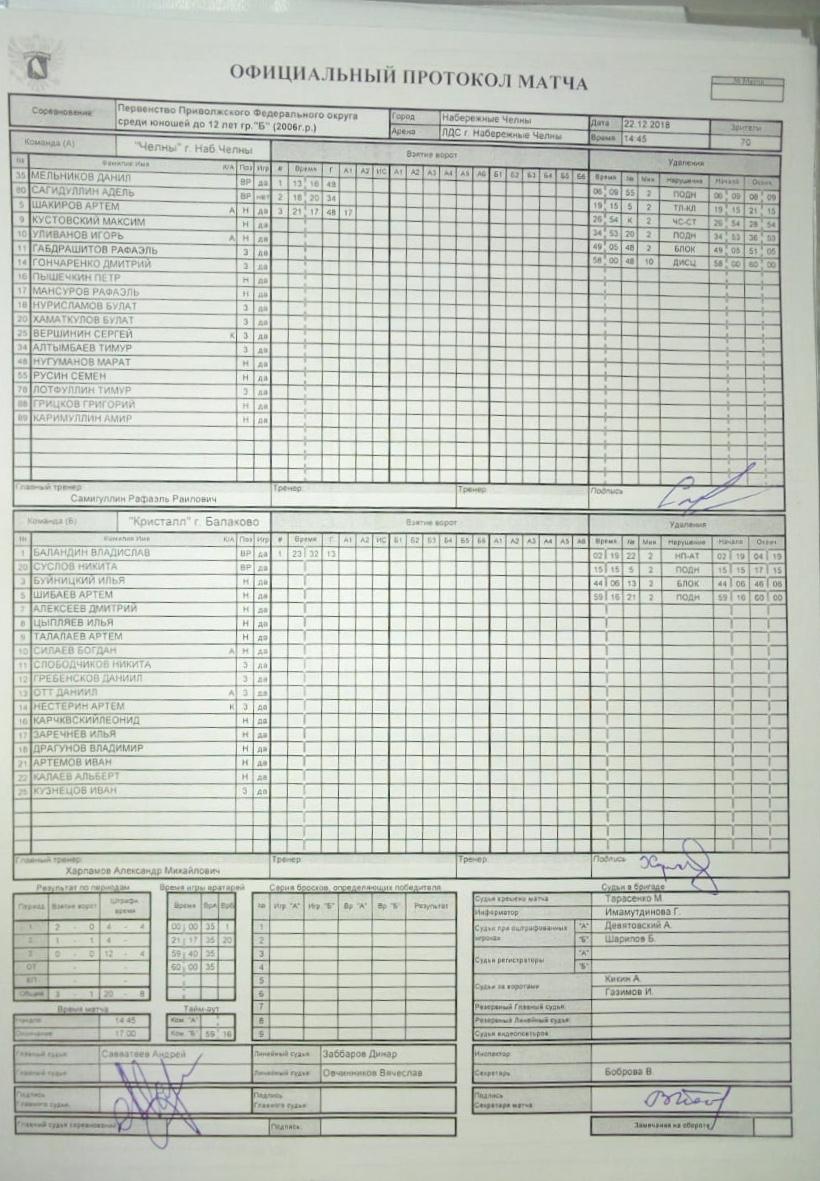 ОФИЦИАЛЬНЫЙ ПРОТОКОЛ МАТЧА
№ Матча
Соревнование Первенство Приволжского Федерального округа среди юношей до 12 лет гр."Б" (2006г.р.) Город Набережные Челны Дата 22.12.2018 Зрители
Арена ЛДС г. Набережные Челны Время 14:45 70
Команда (А) "Челны" г. Наб.Челны Взятие ворот Удаления
№ Фамилия Имя К/А Поз Игр # Время Г А1 А2 ИС А1 А2 А3 А4 А5 А6 Б1 Б2 Б3 Б4 Б5 Б6 Время № Мин Нарушение Начало Оконч.
35 МЕЛЬНИКОВ ДАНИЛ ВР да 1 13 16 48 06 09 55 2 ПОДН 06 09 08 09
80 САГИДУЛЛИН АДЕЛЬ ВР нет 2 18 20 34 19 15 5 2 ТЛ-КЛ 19 15 21 15
5 ШАКИРОВ АРТЕМ А Н да 3 21 17 48 17 26 54 К 2 ЧС-СТ 26 54 28 54
9 КУСТОВСКИЙ МАКСИМ Н да 34 53 20 2 ПОДН 34 53 36 53
10 УЛИВАНОВ ИГОРЬ А Н да 49 05 48 2 БЛОК 49 05 51 05
11 ГАБДРАШИТОВ РАФАЭЛЬ З да 58 00 48 10 ДИСЦ 58 00 60 00
14 ГОНЧАРЕНКО ДМИТРИЙ З да
16 ПЫШЕЧКИН ПЕТР Н да
17 МАНСУРОВ РАФАЭЛЬ Н да
18 НУРИСЛАМОВ БУЛАТ З да
20 ХАМАТКУЛОВ БУЛАТ З да
25 ВЕРШИНИН СЕРГЕЙ К З да
34 АЛТЫМБАЕВ ТИМУР З да
48 НУГУМАНОВ МАРАТ Н да
55 РУСИН СЕМЕН Н да
78 ЛОТФУЛЛИН ТИМУР З да
88 ГРИЦКОВ ГРИГОРИЙ Н да
89 КАРИМУЛЛИН АМИР Н да
Главный тренер: Тренер: Тренер: Подпись
Самигуллин Рафаэль Раилович
Команда (Б) "Кристалл" г. Балаково Взятие ворот Удаления
№ Фамилия Имя К/А Поз Игр # Время Г А1 А2 ИС Б1 Б2 Б3 Б4 Б5 Б6 А1 А2 А3 А4 А5 А6 Время № Мин Нарушение Начало Оконч.
1 БАЛАНДИН ВЛАДИСЛАВ ВР да 1 23 32 13 02 19 22 2 НП-АТ 02 19 04 19
20 СУСЛОВ НИКИТА ВР да 15 15 5 2 ПОДН 15 15 17 15
3 БУЙНИЦКИЙ ИЛЬЯ З да 44 06 13 2 БЛОК 44 06 46 06
5 ШИБАЕВ АРТЕМ Н да 59 16 21 2 ПОДН 59 16 60 00
7 АЛЕКСЕЕВ ДМИТРИЙ Н да
8 ЦЫПЛЯЕВ ИЛЬЯ Н да
9 ТАЛАЛАЕВ АРТЕМ Н да
10 СИЛАЕВ БОГДАН А Н да
11 СЛОБОДЧИКОВ НИКИТА З да
12 ГРЕБЕНСКОВ ДАНИИЛ З да
13 ОТТ ДАНИИЛ А З да
14 НЕСТЕРИН АРТЕМ К З да
16 КАРЧКВСКИЙЛЕОНИД Н да
17 ЗАРЕЧНЕВ ИЛЬЯ Н да
18 ДРАГУНОВ ВЛАДИМИР Н да
21 АРТЕМОВ ИВАН Н да
22 КАЛАЕВ АЛЬБЕРТ Н да
25 КУЗНЕЦОВ ИВАН З да
Главный тренер: Тренер: Тренер: Подпись
Харламов Александр Михайлович
Результат по периодам Время игры вратарей Серия бросков, определяющих победителя Судьи в бригаде
Период Взятие ворот Штрафн. время Время ВрА ВрБ № Игр "А" Игр "Б" Вр "А" Вр "Б" Результат
1 2 - 0 4 - 4 00 00 35 1 1
2 1 - 1 4 - 4 21 17 35 20 2
3 0 - 0 12 - 4 59 40 35 3
ОТ - - 60 00 35 4
БП - - 5
Общий 3 - 1 20 - 8 6
7
8
9
Время матча Тайм-аут
Начало 14:45 Ком. "А"
Окончание 17:00 Ком. "Б" 59 16
Судья времени матча Тарасенко М.
Информатор Имамутдинова Г.
Судьи при оштрафованных игроках "А" Девятовский А.
"Б" Шарипов Б.
Судьи регистраторы "А"
"Б"
Судьи за воротами Кикин А.
Газимов И.
Резервный Главный судья:
Резервный Линейный судья:
Судья видеоповторов:
Главный судья Савватеев Андрей Линейный судья Заббаров Динар Инспектор
Главный судья Линейный судья Овчинников Вячеслав Секретарь Боброва В.
Подпись Главного судьи Подпись Главного судьи: Подпись Секретаря матча
Главный судья соревнований Подпись: Замечания на обороте